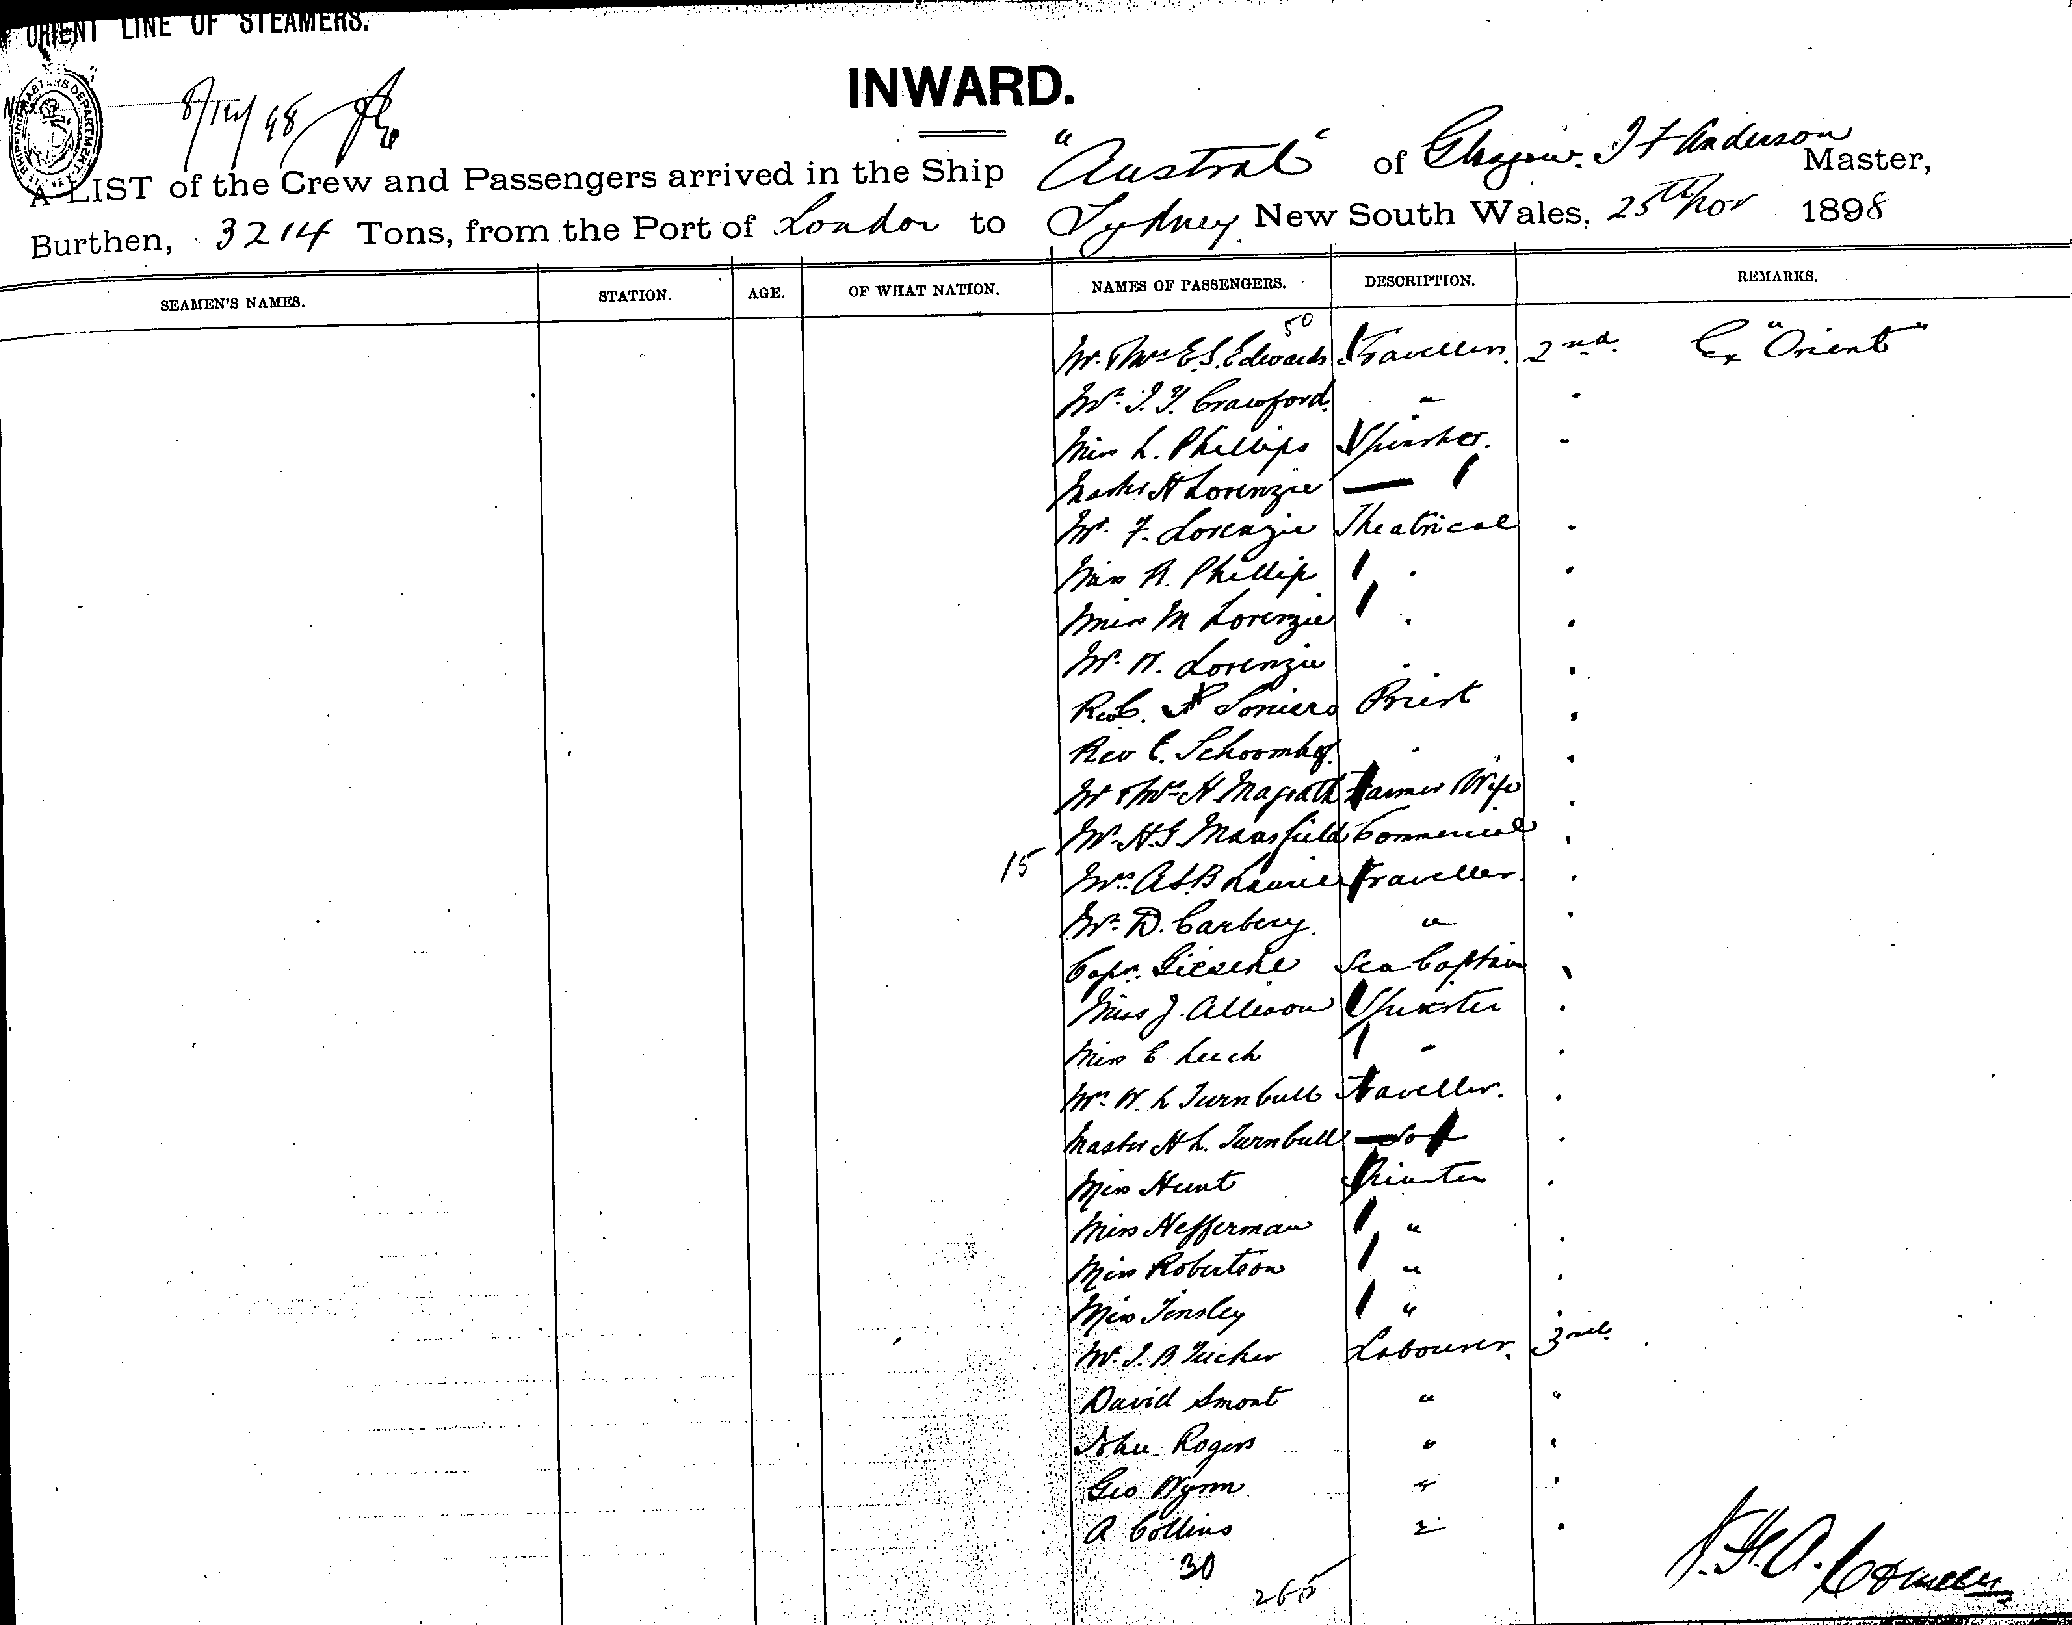 ORIENT LINE OF STEAMERS.
INWARD.
A LIST of the Crew and Passengers arrived in the Ship "Austral" of Glasgow. J F Anderson Master,
Burthen, 3214 Tons, from the Port of London to Sydney, New South Wales, 25th Nov 1898
SEAMEN'S NAMES. STATION. AGE. OF WHAT NATION. NAMES OF PASSENGERS. DESCRIPTION. REMARKS.
50
Mr. & Mrs E.S. Edwards Travellers. 2nd. Ex "Orient"
Mr. J. Y. Crawford. " "
Miss L. Phillips Spinster. "
Master H Lorenzie —
Mr. F. Lorenzie Theatrical "
Miss R. Phillip " "
Miss M Lorenzie " "
Mr. W. Lorenzie " "
Rev. Soniers Priest "
Rev C. Schoomhof. " "
Mr & Mrs H. Magrath Farmer Wife "
Mr. H.G. Mansfield Commercial "
15
Mrs A.L.B Laurie Traveller. "
Mr. D. Carbery. " "
Capt. Giesche Sea Captain "
Miss J. Allison Spinster "
Miss E Leech " "
Mrs W. L Turnbull Traveller. "
Master H L. Turnbull "
Miss Hunt Spinster "
Miss Hefferman " "
Miss Robertson " "
Miss Tinsley " "
Mr. J. B Tucker Labourer. 3rd.
David Smont " "
John Rogers " "
Geo Wynn " "
A Collins " "
30
265